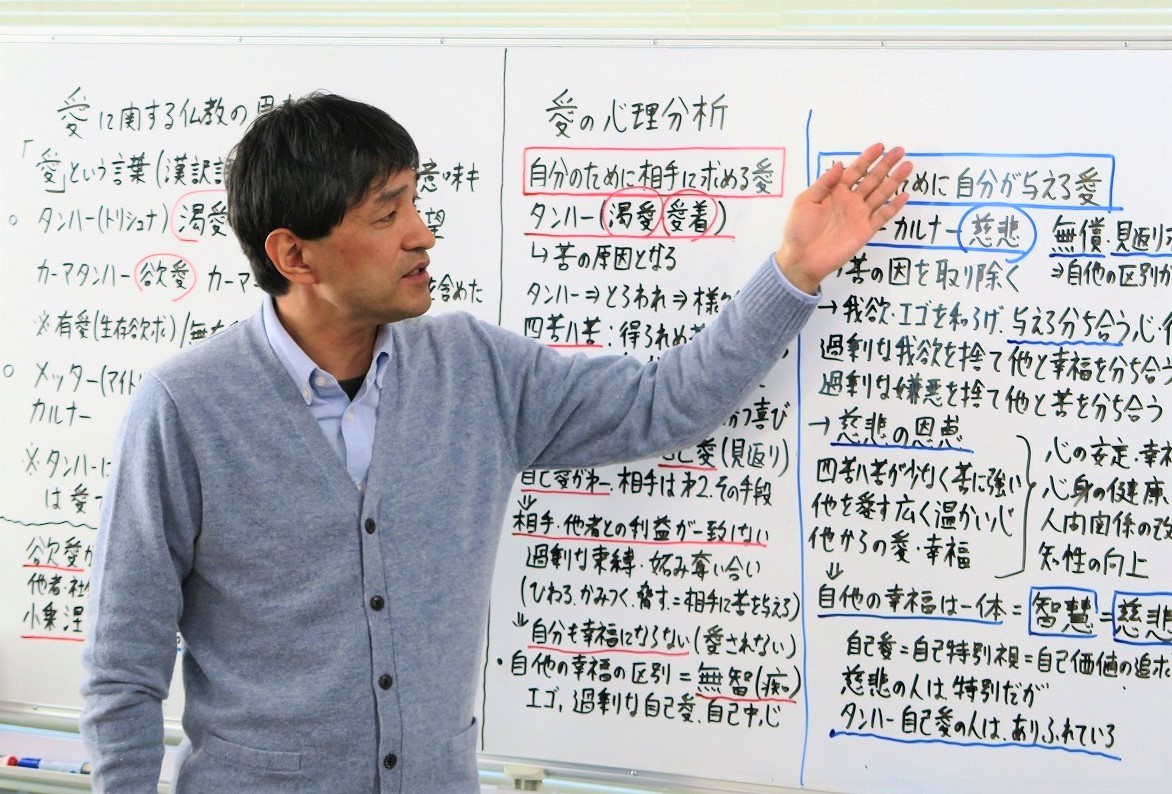 愛に関する仏教の
「愛」という言葉(漢訳
意味キ
○ タンハー(トリシュナ) 渇愛
望
カーマタンハー 欲愛 カーマ
を含めた
※有愛(生存欲求)/無
○ メッター(マイト
カルナー
※タンハーに
は愛
欲愛
他者・社
小乗涅
愛の心理分析
自分のために相手に求める愛
タンハー(渇愛 愛着)
↳苦の原因となる
タンハー⇒とらわれ⇒様々
四苦八苦:得られぬ苦
喜び
自己愛(見返り)
自己愛が第一、相手は第2、その手段
↓
相手・他者との利益が一致しない
過剰な束縛・妬み奪い合い
(ひねる、かみつく、脅す、=相手に苦を与える)
↓自分も幸福にならない(愛されない)
・自他の幸福の区別=無智(痴)
エゴ、過剰な自己愛、自己中心
ために自分が与える愛
カルナー 慈悲 無償・見返り
苦の因を取り除く ⇒自他の区別が
→我欲・エゴを和らげ、与える分ち合う心・
過剰な我欲を捨て他と幸福を分ち合う
過剰な嫌悪を捨て他と苦を分ち合う
→慈悲の恩恵
四苦八苦が少なく苦に強い
他を愛す広く温かい心
他からの愛・幸福
心の安定・幸
心身の健康、
人間関係の改
知性の向上
↓
自他の幸福は一体=智慧=慈悲
自己愛=自己特別視=自己価値の追求
慈悲の人は特別だが
タンハー自己愛の人は、ありふれている